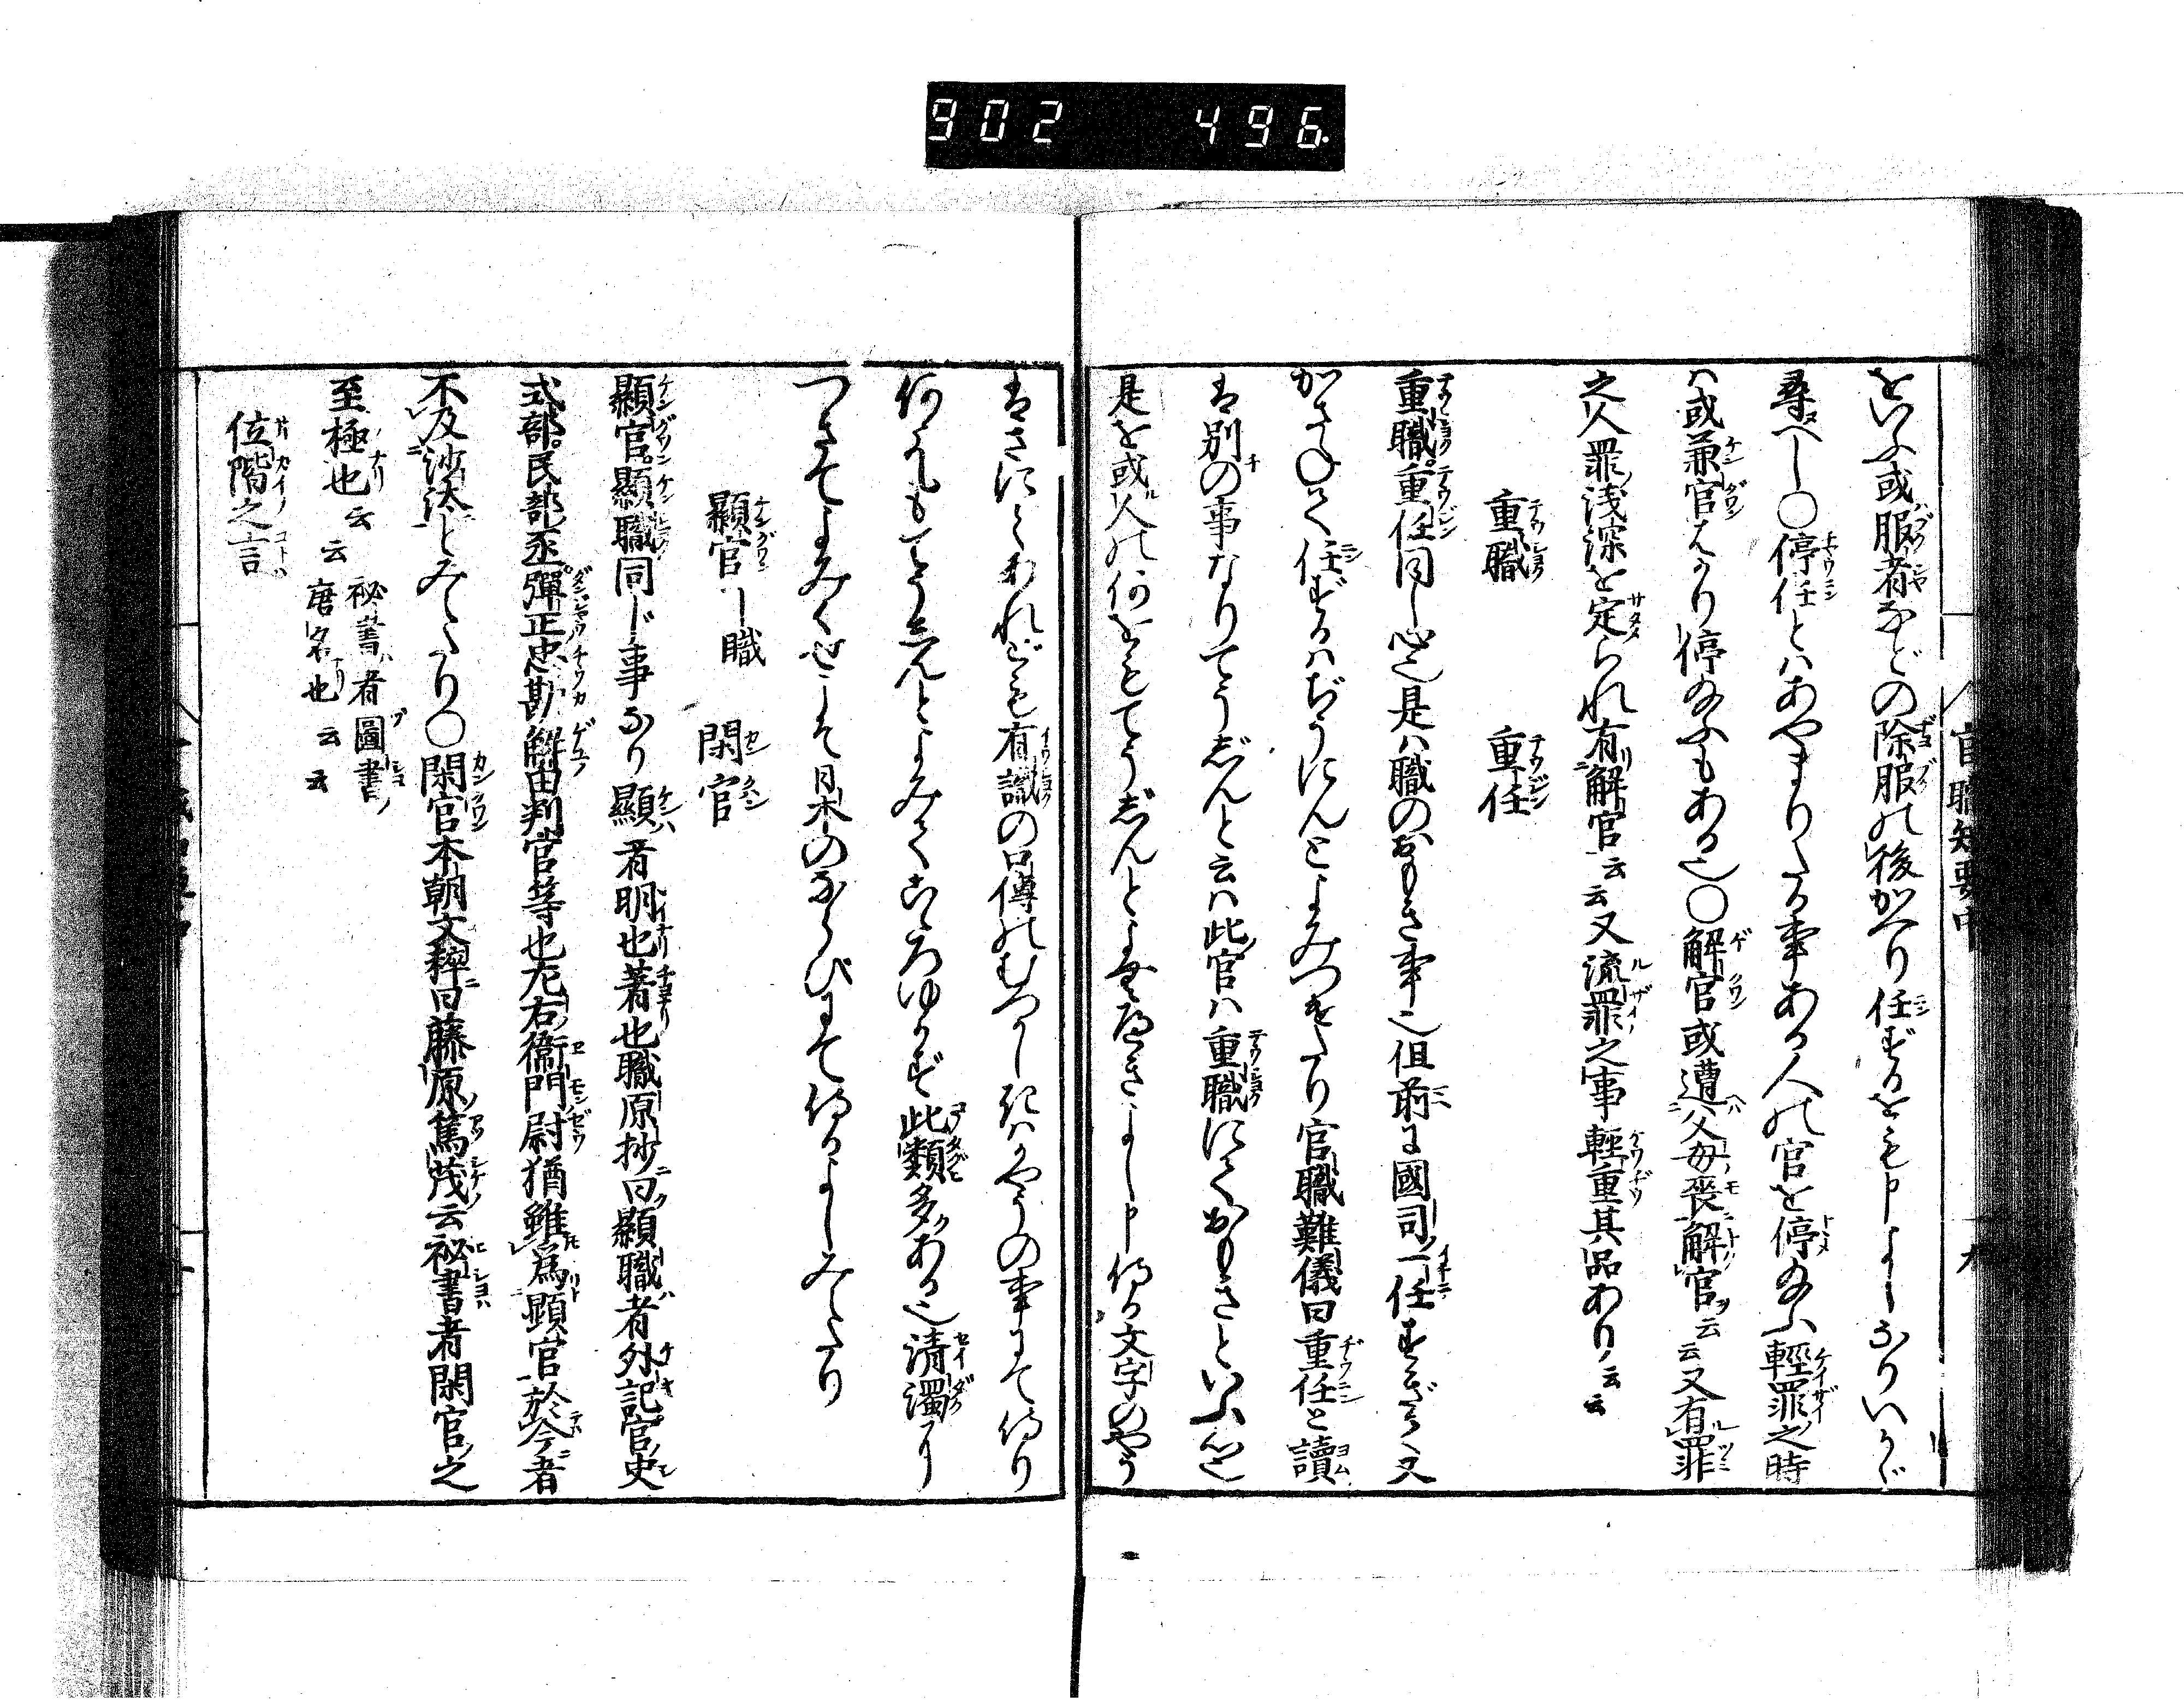 902 496
官職知要中
をいふ或服者などの除服の後かへり任ずるをも申よしなりいかゞ
尋べし〇停任とはあやまりたる事ある人の官を停給ふ輕罪之時
は或兼官ばかり停給ふもある也〇解官或遭父母喪解官云云又有罪
之人罪浅深を定られ有解官云云又流罪之事輕重其品あり云云
重職 重任
重職重任同じ心也是は職のおもき事也但前に國司一任すぎざる又
かさねて任ずるはぢうにんとよみつけたり官職難儀曰重任と讀
は別の事なりてうぢんと云は此官は重職にておもきといふ心也
是を或人の何をもてうぢんとよむべきよし申侍る文字のやう
はさにてあれども有識の口傳のむつかしきはかやうの事にて侍り
何れもてうぢんとよみてこころゆかず此類多ある也清濁に
つきてよみくせこそ日本のならひにて侍るよしみえたり
顯官 職 閑官
顯官顯職同じ事なり顯者明也著也職原抄曰顯職者外記官史
式部民部丞彈正忠勘解由判官等也左右衞門尉猶雖爲顕官於今者
不及沙汰とみえたり〇閑官本朝文粹曰藤原篤茂云祕書者閑官之
至極也云云 祕書者圖書
唐名也云云
位階之言